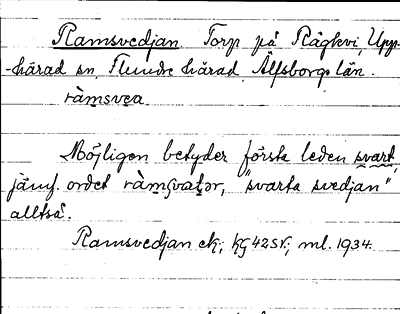 Ramsvedjan Torp på Rågkvi, Upp-
-härad sn, Flundre härad Älfsborgs län.
ràmsvea
Möjligen betyder första leden svart,
jämf. ordet ràmsvatər, "svarta svedjan"
alltså.
Ramsvedjan ek; kg 42 Sv; ml. 1934.